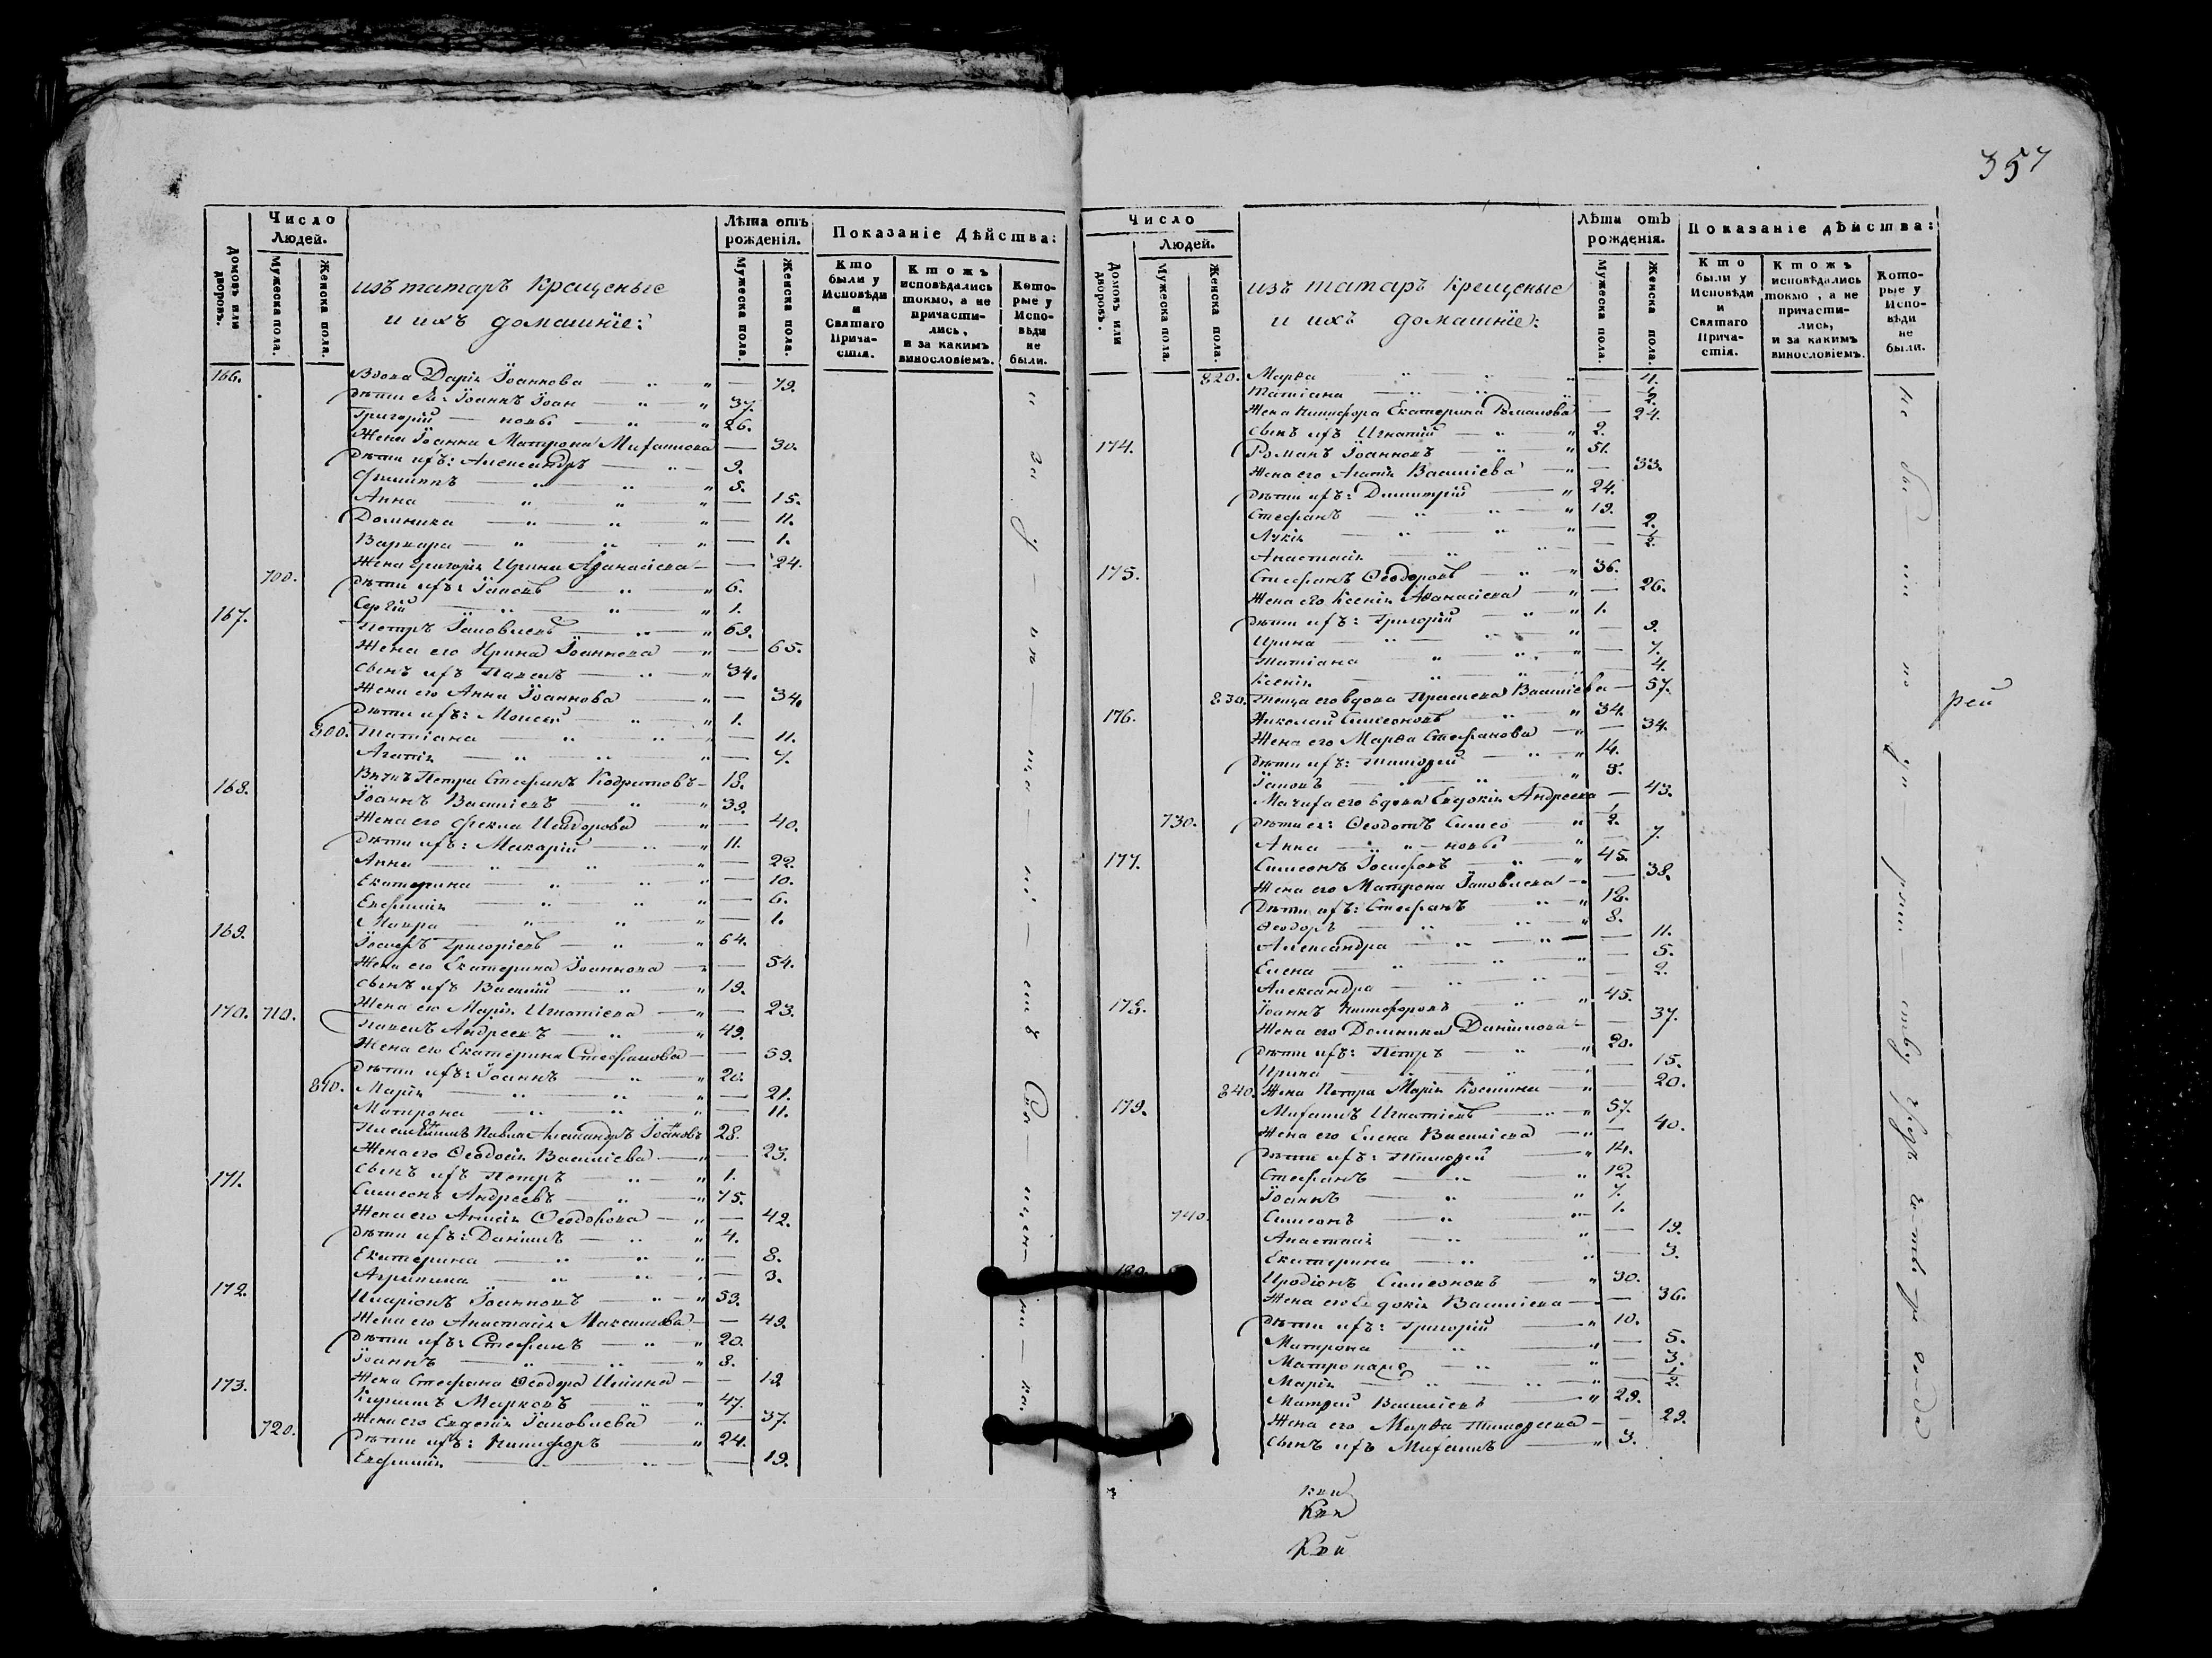 357
Число
Людей.
Домовъ или дворовъ.
Мужеска пола.
Женска пола.
изъ татаръ крещеные
и ихъ домашнїе:
Лѣта отъ рожденія.
Мужеска пола.
Женска пола.
Показаніе Дѣйства:
Кто были у Исповѣди и Святаго Причастія.
Ктожъ исповѣдались токмо, а не причастились, и за какимъ винословіемъ.
Которые у Исповѣди не были.
166. Вдова Дарія Їоаннова — 79.
Дѣти ея: Їоаннъ Їоан 37.
Григорій — новы 26.
Жена Їоанна Матрона Михаилова — 30.
Дѣти ихъ: Александръ 9.
Филиппъ 5.
Анна — 15.
Домника — 11.
Варвара — 1.
Жена Григорія Ирина Аѳанасіева — 24.
700. Дѣти ихъ: Їаковъ 6.
Сергій 1.
167. Петръ Їаковлевъ 69.
Жена его Ирина Їоаннова — 65.
Сынъ ихъ Павелъ 34.
Жена его Анна Їоаннова — 34.
Дѣти ихъ: Моисей 1.
800. Татіана — 11.
Агаѳія — 7.
Внукъ Петра Стефанъ Кодратовъ 18.
168. Їоаннъ Василіевъ 39.
Жена его Фекла Исидорова — 40.
Дѣти ихъ: Макарій 11.
Анна — 22.
Екатерина — 10.
Евфимія — 6.
Мавра — 1.
169. Їосифъ Григоріевъ 64.
Жена его Екатерина Їоаннова — 54.
Сынъ ихъ Василій 19.
Жена его Марія Игнатіева — 23.
170. 710. Павелъ Андреевъ 49.
Жена его Екатерина Стефанова — 59.
Дѣти ихъ: Їоаннъ 20.
810. Марія — 21.
Матрона — 11.
Племянникъ Павла Александръ Їоанновъ 28.
Жена его Ѳеодосія Василіева — 23.
Сынъ ихъ Петръ 1.
171. Симеонъ Андреевъ 75.
Жена его Анисія Ѳеодорова — 42.
Дѣти ихъ: Даніилъ 4.
Екатерина — 8.
Агрипина — 3.
172. Иларіонъ Їоанновъ 53.
Жена его Анастасія Максимова — 49.
Дѣти ихъ: Стефанъ 20.
Їоаннъ 8.
Жена Стефана Ѳеодора Ильина — 19
173. Кирилъ Марковъ 47.
Жена его Евдокія Їаковлева — 37.
720. Дѣти ихъ: Никифоръ 24.
Евфимія — 19.
Число
Людей.
Домовъ или дворовъ.
Мужеска пола.
Женска пола.
изъ татаръ крещеные
и ихъ домашнїе:
Лѣта отъ рожденія.
Мужеска пола.
Женска пола.
Показаніе дѣйства:
Кто были у Исповѣди и Святаго Причастія.
Ктожъ исповѣдались токмо, а не причастились, и за какимъ винословіемъ.
Которые у Исповѣди не были.
820. Марѳа — 4.
Татіана — 2.
Жена Никифора Екатерина Романова — 24.
Сынъ ихъ Игнатій 2.
174. Романъ Їоанновъ 51.
Жена его Агаѳія Василіева — 33.
Дѣти ихъ: Димитрій 24.
Стефанъ 19.
Лукія — 2.
Анастасія — ½.
175. Стефанъ Ѳеодоровъ 36.
Жена его Ксенія Аѳанасіева — 26.
Дѣти ихъ: Григорій 1.
Ирина — 9.
Татіана — 7.
Ксенія — 4.
830. Теща его вдова Прасковья Василіева — 57.
176. Николай Симеоновъ 34.
Жена его Марѳа Стефанова — 34.
Дѣти ихъ: Тимоѳей 14.
Їаковъ 3.
Мачиха его вдова Евдокія Андреева — 43.
730. Дѣти ея: Ѳеодотъ Симео ½.
Анна — новы — 7.
177. Симеонъ Їосифовъ 45.
Жена его Матрона Їаковлева — 38.
Дѣти ихъ: Стефанъ 12.
Ѳеодоръ 8.
Александра — 11.
Елена — 5.
Александра — 2.
178. Їоаннъ Никифоровъ 45.
Жена его Домника Даніилова — 37.
Дѣти ихъ: Петръ 20.
Ирина — 15.
840. Жена Петра Марія Косьмина — 20.
179. Михаилъ Игнатіевъ 57.
Жена его Елена Василіева — 40.
Дѣти ихъ: Тимоѳей 14.
Стефанъ 12.
Їоаннъ 7.
740. Симеонъ 1.
Анастасія — 19.
Екатерина — 3.
180. Иродіонъ Симеоновъ 30.
Жена его Евдокія Василіева — 36.
Дѣти ихъ: Григорій 10.
Матрона — 5.
Матрона — 3.
Марія — ½.
Матѳей Василіевъ 29.
Жена его Марѳа Тимоѳеева — 29.
Сынъ ихъ Михаилъ 3.
рей